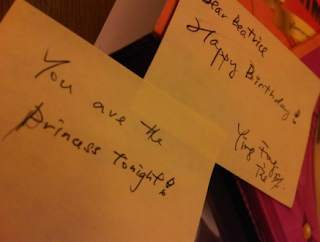 You are the
Princess tonight!
Dear Beatrice
Happy Birthday!
Ying